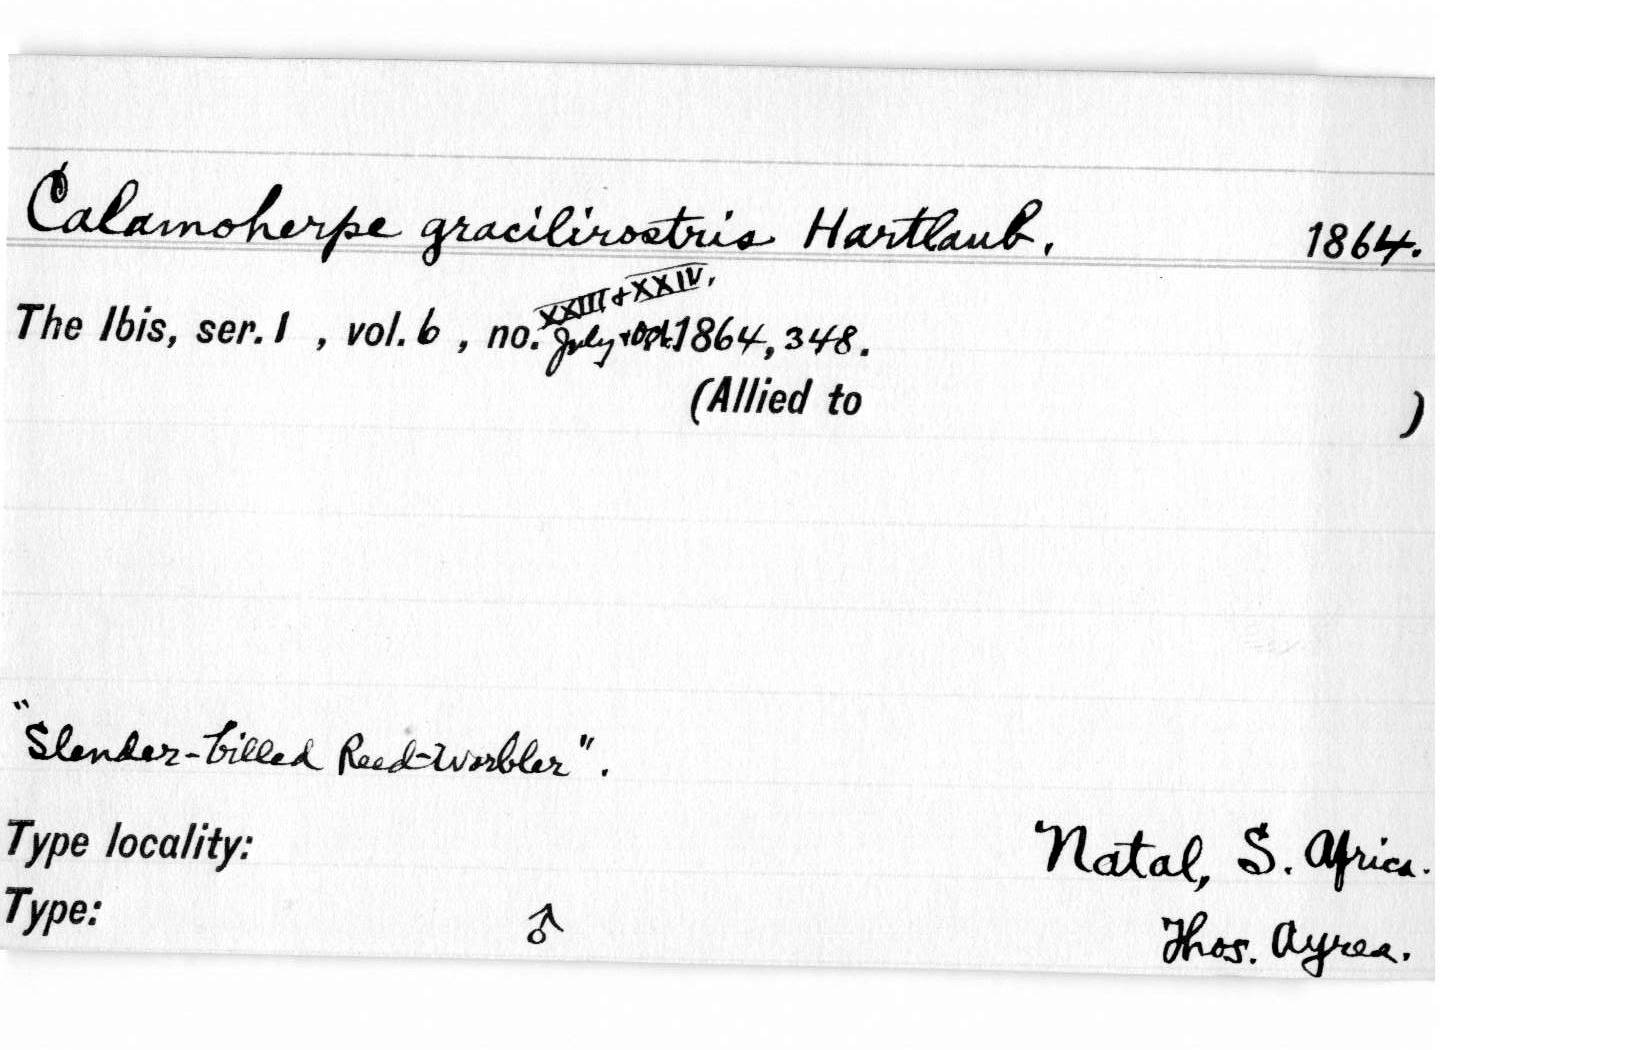 Calamoherpe gracilirostris Hartlaub. 1864.
XXIII + XXIV.
The Ibis, ser. 1 , vol. 6 , no. July + Oct. 1864, 348.
(Allied to )
"Slender-billed Reed-Warbler".
Type locality: Natal, S. Africa.
Type: ♂ Thos. Ayres.